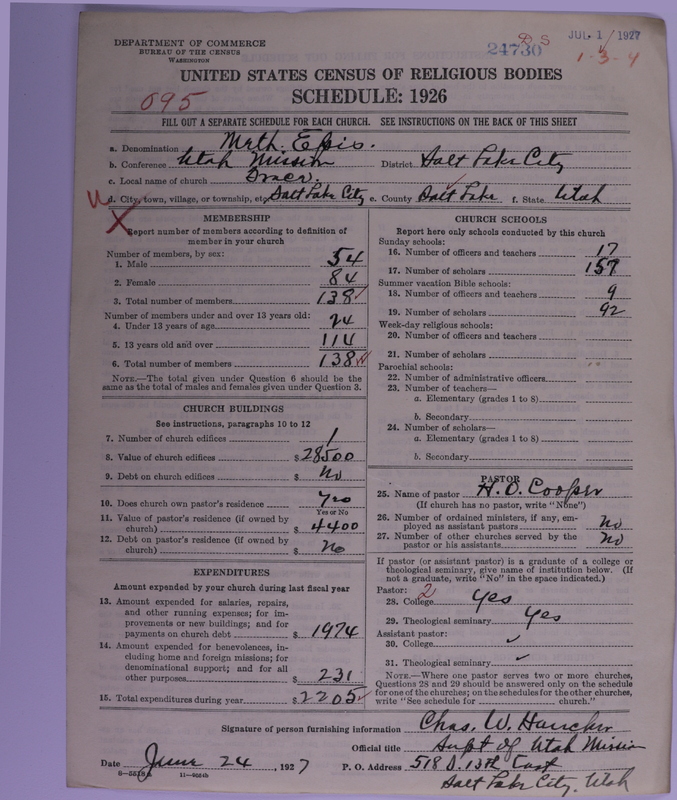 DEPARTMENT OF COMMERCE
BUREAU OF THE CENSUS
WASHINGTON
24730 D S
JUL 1 / 1927
1-3-4
UNITED STATES CENSUS OF RELIGIOUS BODIES
SCHEDULE: 1926
095
FILL OUT A SEPARATE SCHEDULE FOR EACH CHURCH. SEE INSTRUCTIONS ON THE BACK OF THIS SHEET
a. Denomination Meth. Epis.
b. Conference Utah Mission District Salt Lake City
c. Local name of church
d. City, town, village, or township, etc. Salt Lake City e. County Salt Lake f. State Utah
MEMBERSHIP
Report number of members according to definition of
member in your church
Number of members, by sex:
1. Male 54
2. Female 84
3. Total number of members 138
Number of members under and over 13 years old:
4. Under 13 years of age 24
5. 13 years old and over 114
6. Total number of members 138
NOTE.—The total given under Question 6 should be the
same as the total of males and females given under Question 3.
CHURCH BUILDINGS
See instructions, paragraphs 10 to 12
7. Number of church edifices 1
8. Value of church edifices $ 28500
9. Debt on church edifices $ No
10. Does church own pastor's residence Yes
Yes or No
11. Value of pastor's residence (if owned by
church) $ 4400
12. Debt on pastor's residence (if owned by
church) $ No
EXPENDITURES
Amount expended by your church during last fiscal year
13. Amount expended for salaries, repairs,
and other running expenses; for im-
provements or new buildings; and for
payments on church debt $ 1974
14. Amount expended for benevolences, in-
cluding home and foreign missions; for
denominational support; and for all
other purposes $ 231
15. Total expenditures during year $ 2205
CHURCH SCHOOLS
Report here only schools conducted by this church
Sunday schools:
16. Number of officers and teachers 17
17. Number of scholars 157
Summer vacation Bible schools:
18. Number of officers and teachers 9
19. Number of scholars 92
Week-day religious schools:
20. Number of officers and teachers
21. Number of scholars
Parochial schools:
22. Number of administrative officers
23. Number of teachers—
a. Elementary (grades 1 to 8)
b. Secondary
24. Number of scholars—
a. Elementary (grades 1 to 8)
b. Secondary
PASTOR
25. Name of pastor H. O. Cooper
(If church has no pastor, write "None")
26. Number of ordained ministers, if any, em-
ployed as assistant pastors No
27. Number of other churches served by the
pastor or his assistants No
If pastor (or assistant pastor) is a graduate of a college or
theological seminary, give name of institution below. (If
not a graduate, write "No" in the space indicated.)
Pastor: 2
28. College Yes
29. Theological seminary Yes
Assistant pastor:
30. College
31. Theological seminary
NOTE.—Where one pastor serves two or more churches,
Questions 28 and 29 should be answered only on the schedule
for one of the churches; on the schedules for the other churches,
write "See schedule for church."
Signature of person furnishing information Chas. W. Hancher
Official title Supt of Utah Mission
Date June 24, 1927 P. O. Address 518 S. 13th East
Salt Lake City, Utah